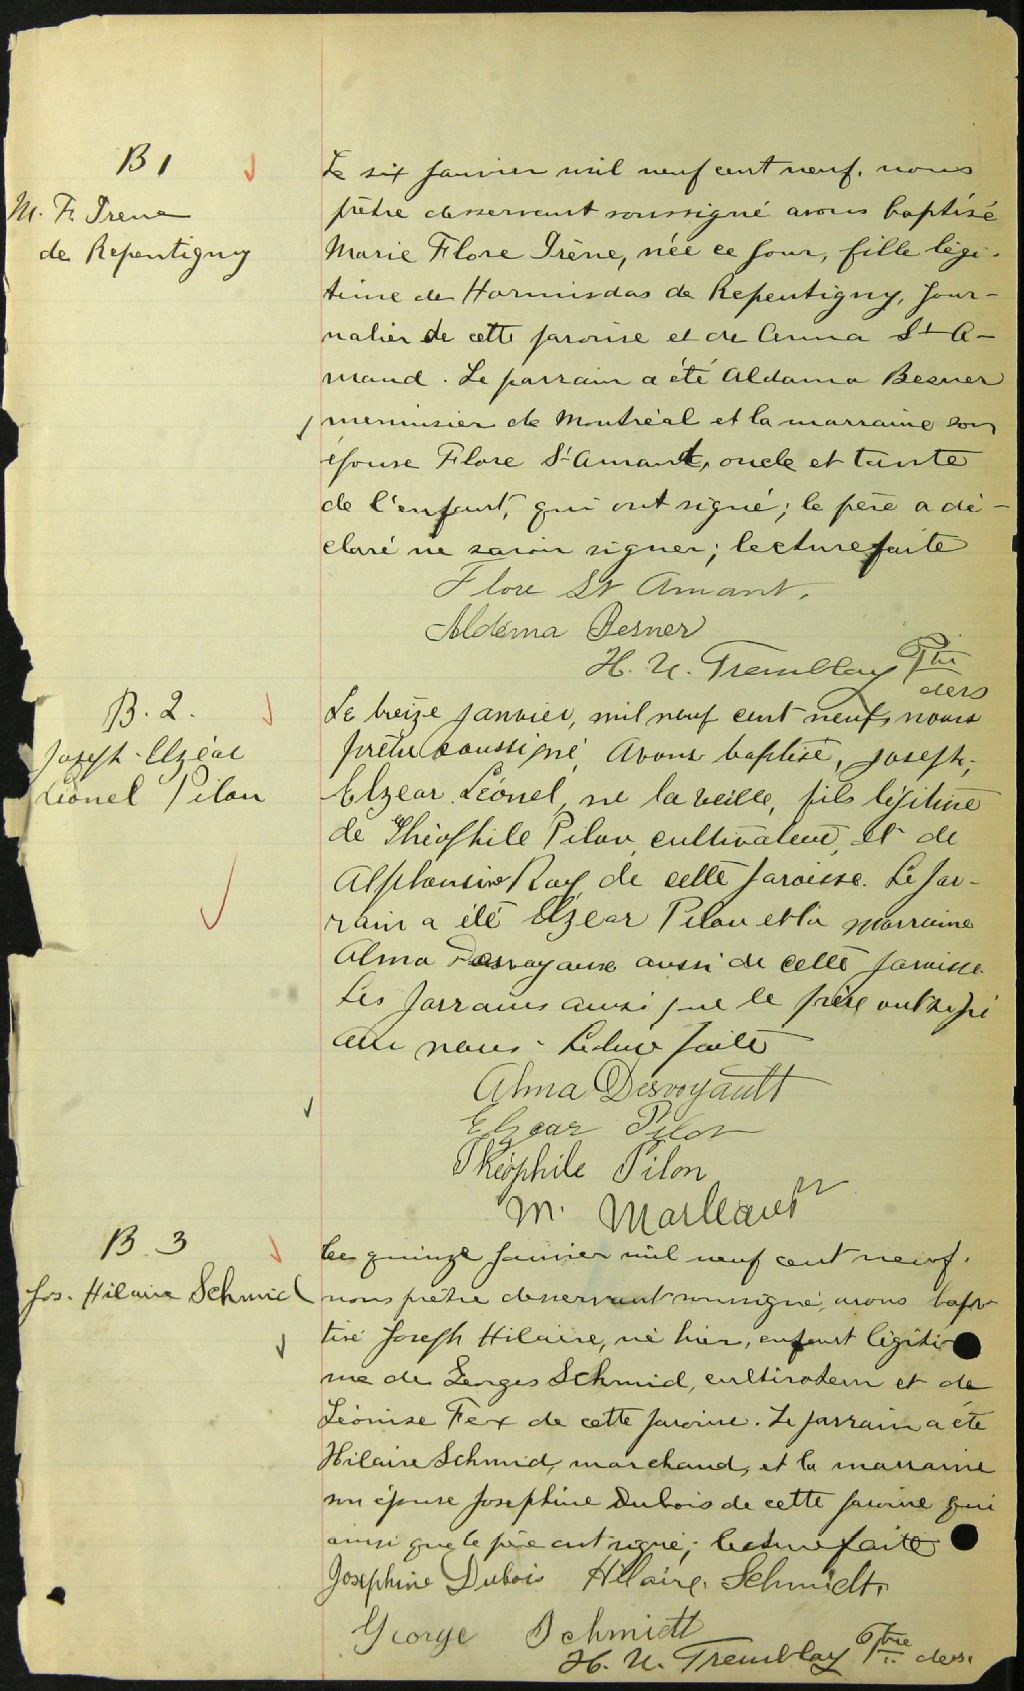 B 1
M. F. Irène
de Repentigny
Le six janvier mil neuf cent neuf, nous
prêtre desservant soussigné avons baptisé
Marie Flore Irène, née ce jour, fille légi-
time de Hormisdas de Repentigny, jour-
nalier de cette paroisse et de Anna St A-
mand. Le parrain a été Aldama Besner
menuisier de Montréal et la marraine son
épouse Flore St Amant, oncle et tante
de l'enfant, qui ont signé; le père a dé-
claré ne savoir signer; lecture faite
Flore St Amant.
Aldéma Besner
H. U. Tremblay Ptre
ders
B. 2.
Joseph-Elzéar
Léonel Pilon
Le treize janvier, mil neuf cent neuf, nous
prêtre soussigné, avons baptisé, Joseph,
Elzear Léonel, né la veille, fils légitime
de Théophile Pilon, cultivateur, et de
Alphonsine Roy, de cette paroisse. Le par-
rain a été Elzear Pilon et la marraine
Alma Desvoyause aussi de cette paroisse
Les parrains ainsi que le père ont signé
avec nous - Lecture faite
Alma Desvoyault
Elzear Pilon
Théophile Pilon
M. Marleau
B. 3
Jos. Hilaire Schmid
Le quinze janvier mil neuf cent neuf,
nous prêtre desservant soussigné, avons bap-
tisé Joseph Hilaire, né hier, enfant légiti-
me de Georges Schmid, cultivateur et de
Léonise Fex de cette paroisse. Le parrain a été
Hilaire Schmid, marchand, et la marraine
son épouse Josephine Dubois de cette paroisse qui
ainsi que le père ont signé; lecture faite
Josephine Dubois Hilaire Schmidt.
George Schmidt
H. U. Tremblay Ptre ders.